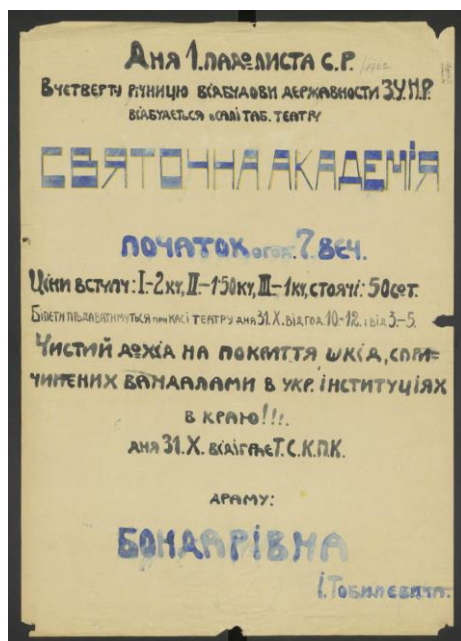 Дня 1. падолиста с.р. /1922
В четверту річницю відбудови державности З.У.Н.Р.
відбудеться в салі таб. театру
СВЯТОЧНА АКАДЕМІЯ
ПОЧАТОК о год. 7. веч.
Ціни вступу: I-2 кч, II.-1·50 кч, III-1 кч, стоячі: 50 сот.
при касі театру дня 31. X. від год. 10-12. і від 3.-5.
Чистий дохід на покриття шкід, спри-
чинених вандалами в укр. інституціях
в краю!!!.
дня 31. X. відіграє Т.С.К.П.К.
драму:
БОНДАРІВНА
І. Тобилевича.